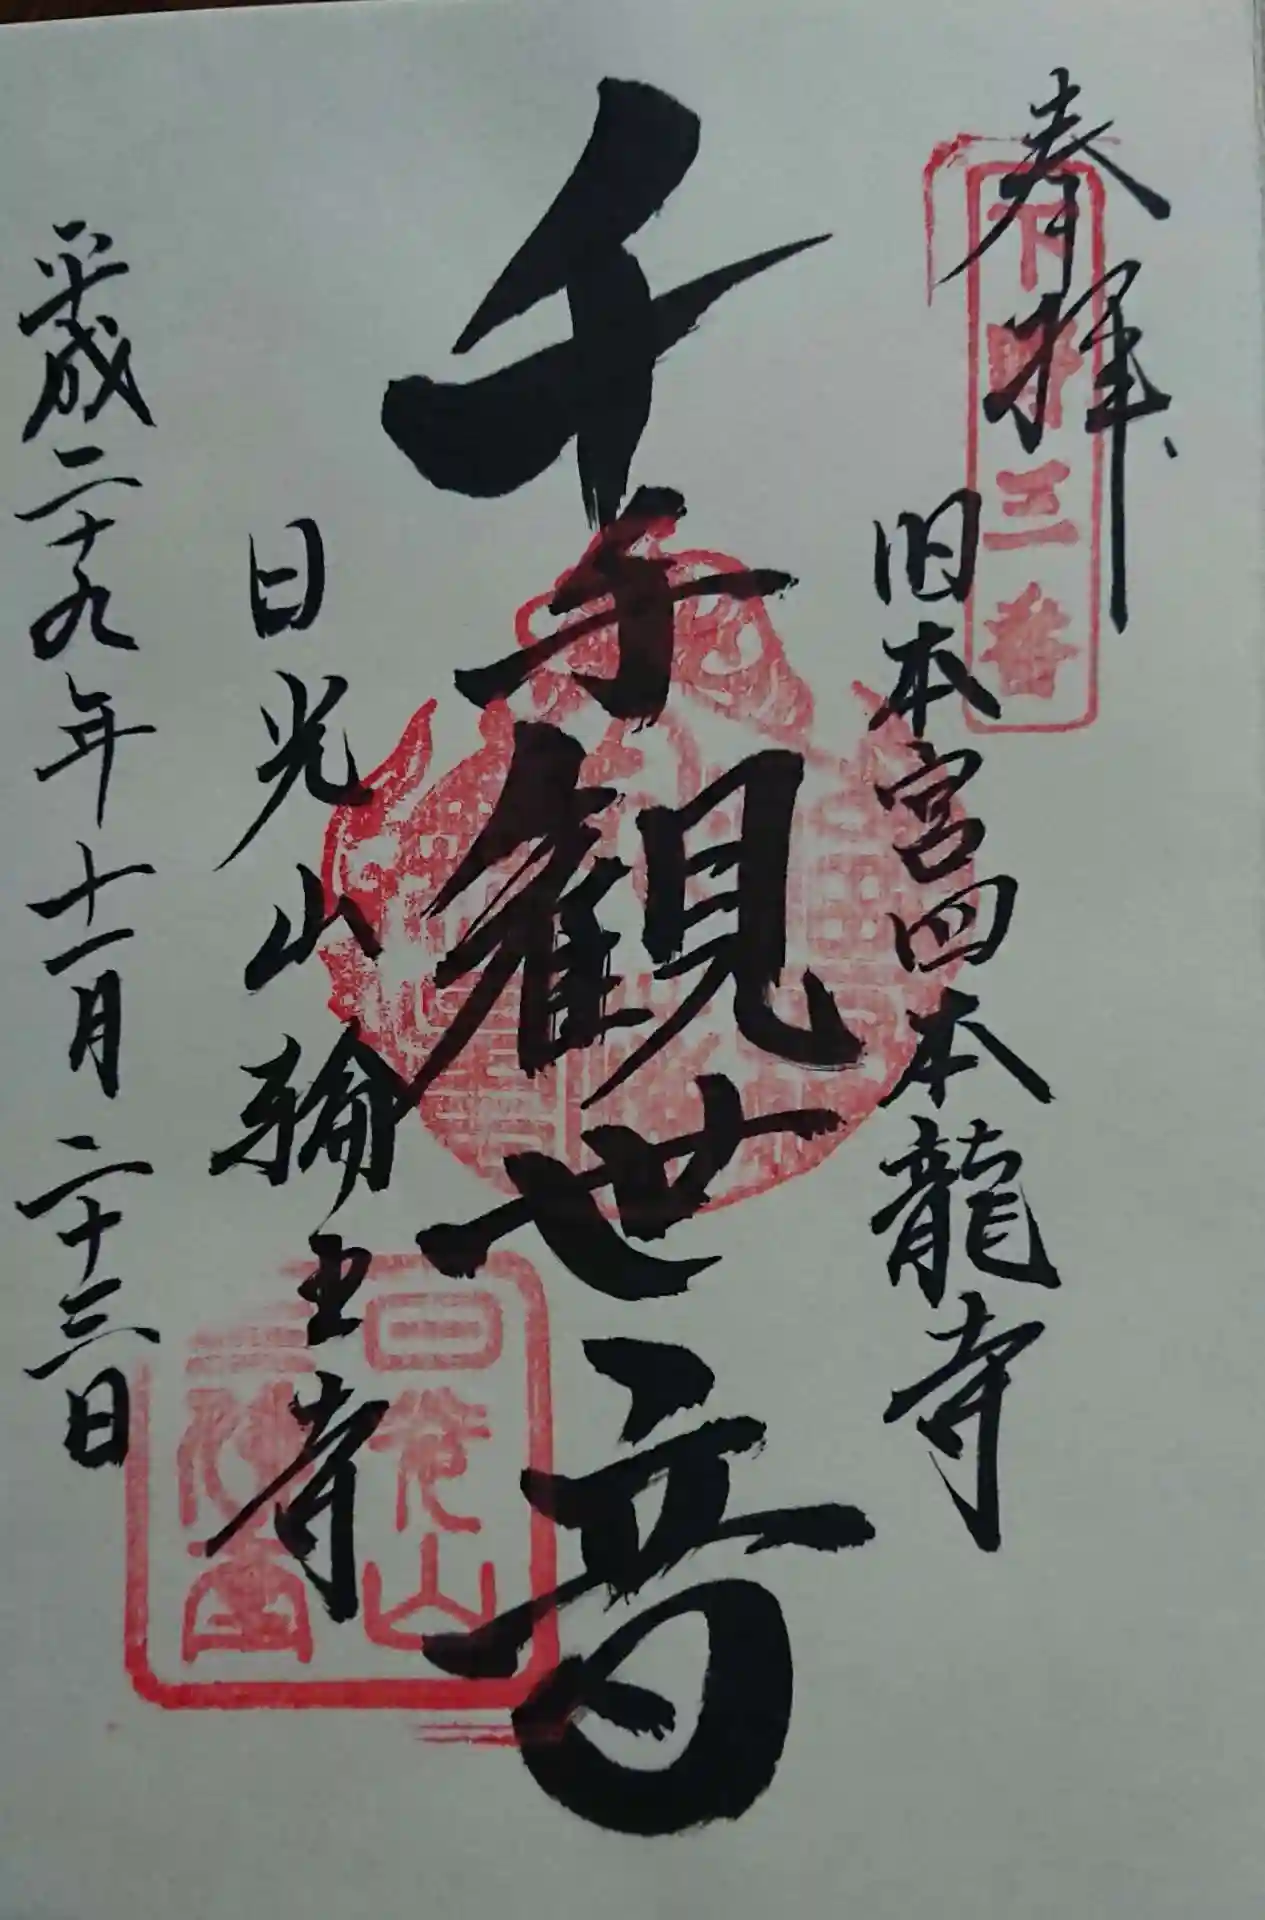 奉拝
下野三番
旧本宮四本龍寺
千手観世音
日光山輪王寺
日光山
平成二十九年十一月二十三日